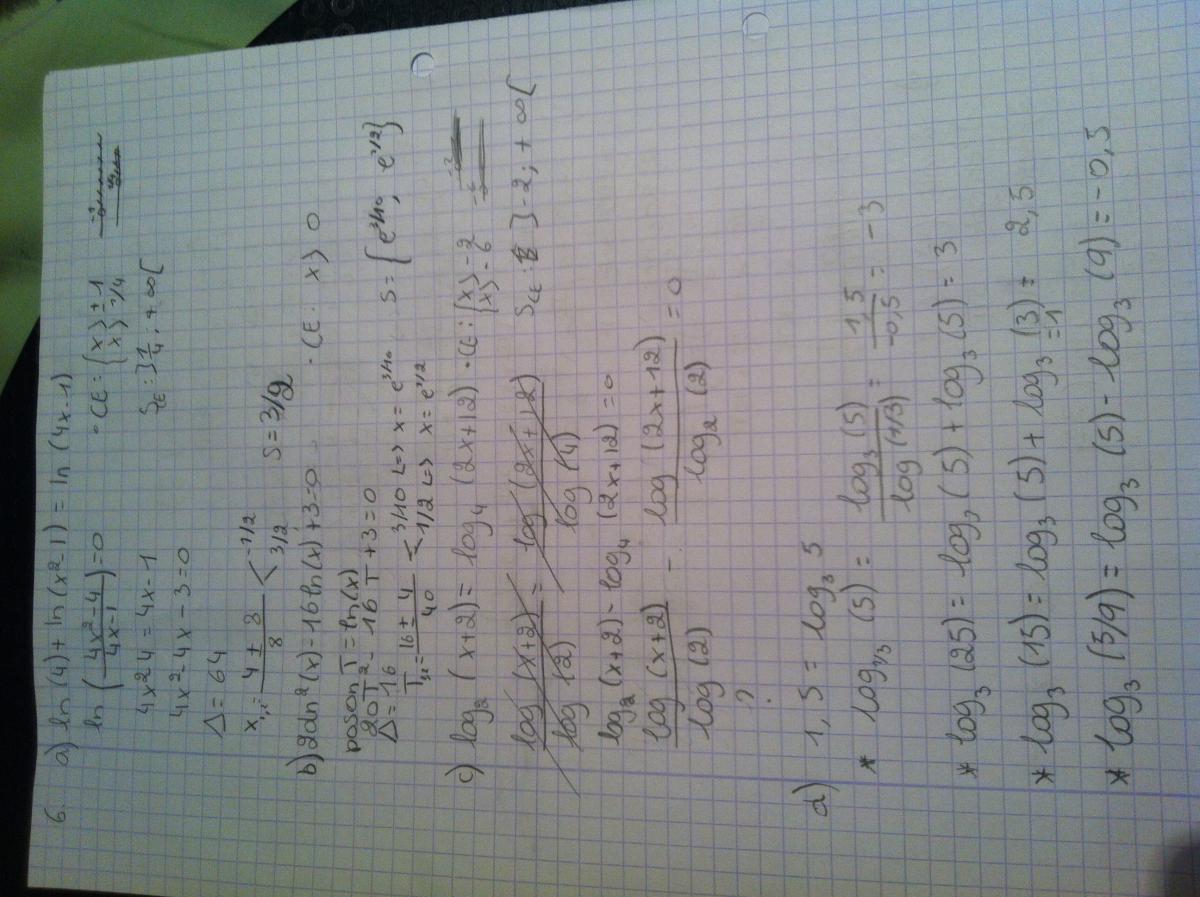 6. a) ln (4) + ln (x²-1) = ln (4x-1)
ln ( 4x²-4 / 4x-1 ) = 0
• CE = { x > ± 1
{ x > 1/4
4x²-4 = 4x-1
S_CE : ]1/4 ; +∞[
4x²-4x-3=0
Δ = 64
x₁,₂ = 4 ± 8 / 8 < -1/2
3/2
S = 3/2
b) 20ln²(x) - 16 ln(x) + 3 = 0 . • CE : x > 0
posons T = ln(x)
20T² - 16 T + 3 = 0
Δ = 16
T₁,₂ = 16 ± 4 / 40 < 3/10 <=> x = e^3/10
1/2 <=> x = e^1/2
S = { e^3/10 , e^1/2 }
c) log₂ (x+2) = log₄ (2x+12) • CE : { x > -2
{ x > -6
log (x+2) / log (2) = log (2x+12) / log (4)
S_CE : ]-2 ; +∞[
log₂ (x+2) - log₄ (2x+12) = 0
log (x+2) / log (2) - log (2x+12) / log₂ (2) = 0
?
d) 1,5 = log₃ 5
* log₁/₃ (5) = log₃ (5) / log (1/3) = 1,5 / -0,5 = -3
* log₃ (25) = log₃ (5) + log₃ (5) = 3
* log₃ (15) = log₃ (5) + log₃ (3) = 2,5
=1
* log₃ (5/9) = log₃ (5) - log₃ (9) = -0,5